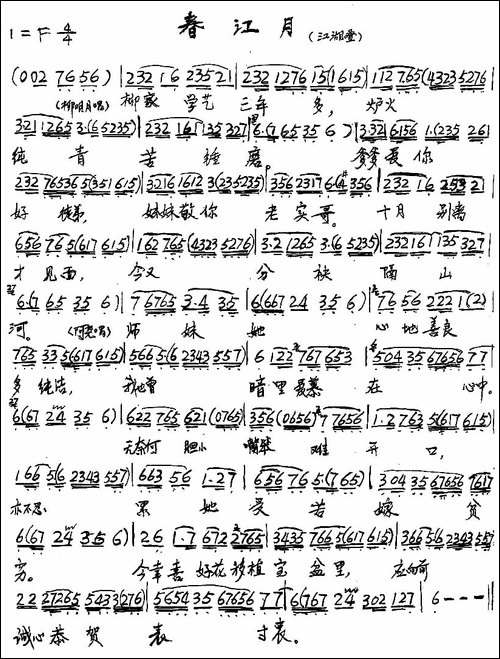 春江月
1=F 4/4
(江湖叠)
(002 7656) | 232 16 23521 | 232 1276 15(1615) | 112765(43235276
(柳明月唱) 柳家 学艺 三年 多, 炉火
3211265 3·(65235) | 232 161 135 327 | 6·(765 35 6) | 332 6156 1·(235 261
纯青 苦 磨。 爹爹爱你
232 765365(351615) | 3216 1612 3(235235) | 356 2317 6(4 356 | 232 16
好 妹妹敬你 老实哥。 十月 别离
656 765(617 615) | 162 765(4323 5276) | 3·2 1265 3·(6 5235) | 232161 135 327
才见面, 今又 分袂 隔山
6·(7 65 35 6) | 7 6765 3·4 35 | 6(667 24 35 6) | 76 56 2221(2)
河。 师妹她 心地善良
765 335(617615) | 5665(6 2343 557) | 6 122 767 653 | 504 35 67656 77
多纯洁, 我也曾 暗里爱慕在 心中。
6(67 24 35 6) | 622 765 621(0765) | 356(0656) 77656 | 1·2 7635(617615)
无奈何 胆小 嘴笨 难开口,
1665(6 2343 557) | 663 56 1·27 | 656 765(765) | 304 35 67656 7617
亦不忍 累她 受苦 嫁贫
6(67 24 356) | 26 1·7 6722765 | 3435 7665(617615) | 3665(6 2343557
穷。 今幸喜 好花移植宝盆里, 应
22 27265 5433(276) | 5654 35 67656 77 | 6(767 24 302 127 | 6 - - - ‖
诚心恭贺 表 寸衷。